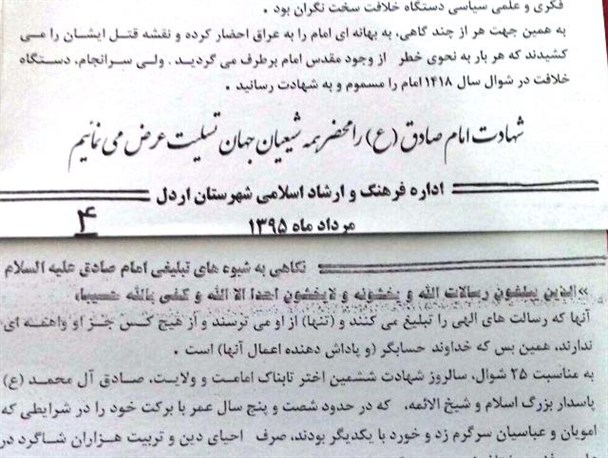 فکری و علمی سیاسی دستگاه خلافت سخت نگران بود .
به همین جهت هر از چند گاهی، به بهانه ای امام را به عراق احضار کرده و نقشه قتل ایشان را می
کشیدند که هر بار به نحوی خطر از وجود مقدس امام برطرف می گردید . ولی سرانجام، دستگاه
خلافت در شوال سال ۱۴۱۸ امام را مسموم و به شهادت رسانید .
شهادت امام صادق (ع) را محضر همه شیعیان جهان تسلیت عرض می نمائیم
اداره فرهنگ و ارشاد اسلامی شهرستان اردل
مرداد ماه ۱۳۹۵
۴
نگاهی به شیوه های تبلیغی امام صادق علیه السلام
»الذین یبلغون رسالات الله و یخشونه و لایخشون احدا الا الله و کفی بالله حسیبا»
آنها که رسالت های الهی را تبلیغ می کنند و (تنها) از او می ترسند و از هیچ کس جز او واهمه ای
ندارند، همین بس که خداوند حسابگر (و پاداش دهنده اعمال آنها) است .
به مناسبت ۲۵ شوال، سالروز شهادت ششمین اختر تابناک امامت و ولایت، صادق آل محمد (ع)
پاسدار بزرگ اسلام و شیخ الائمه، که در حدود شصت و پنج سال عمر با برکت خود را در شرایطی که
امویان و عباسیان سرگرم زد و خورد با یکدیگر بودند، صرف احیای دین و تربیت هزاران شاگرد در